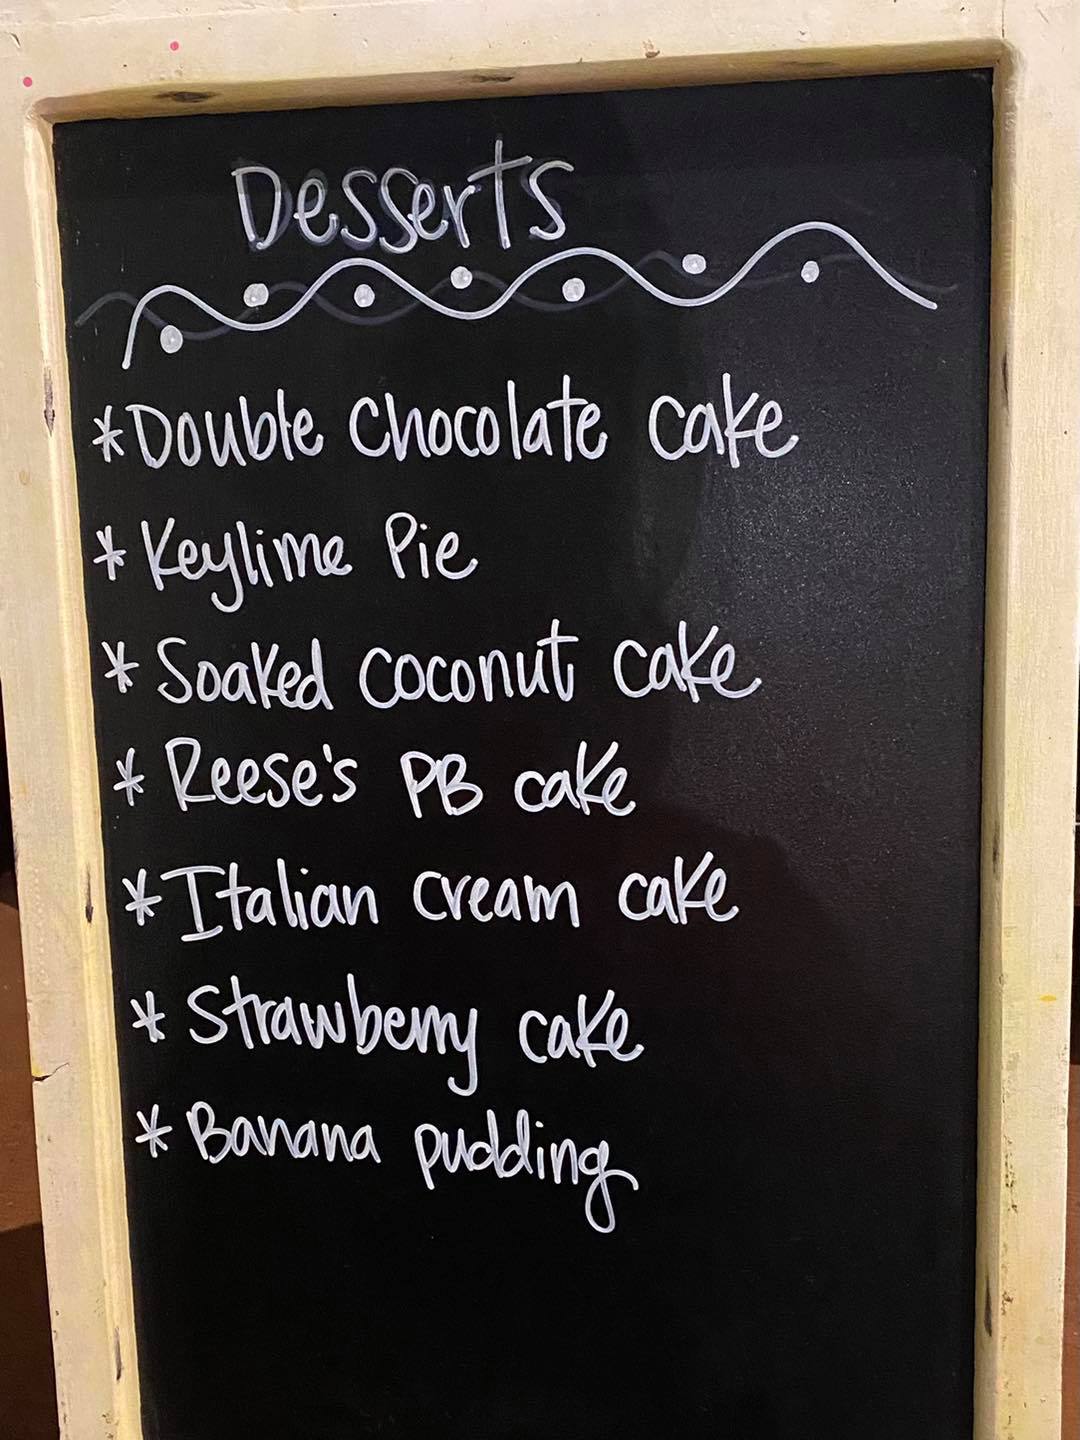 Desserts
*Double Chocolate cake
* Keylime Pie
* Soaked coconut cake
* Reese's PB cake
* Italian cream cake
* Strawberry cake
* Banana pudding